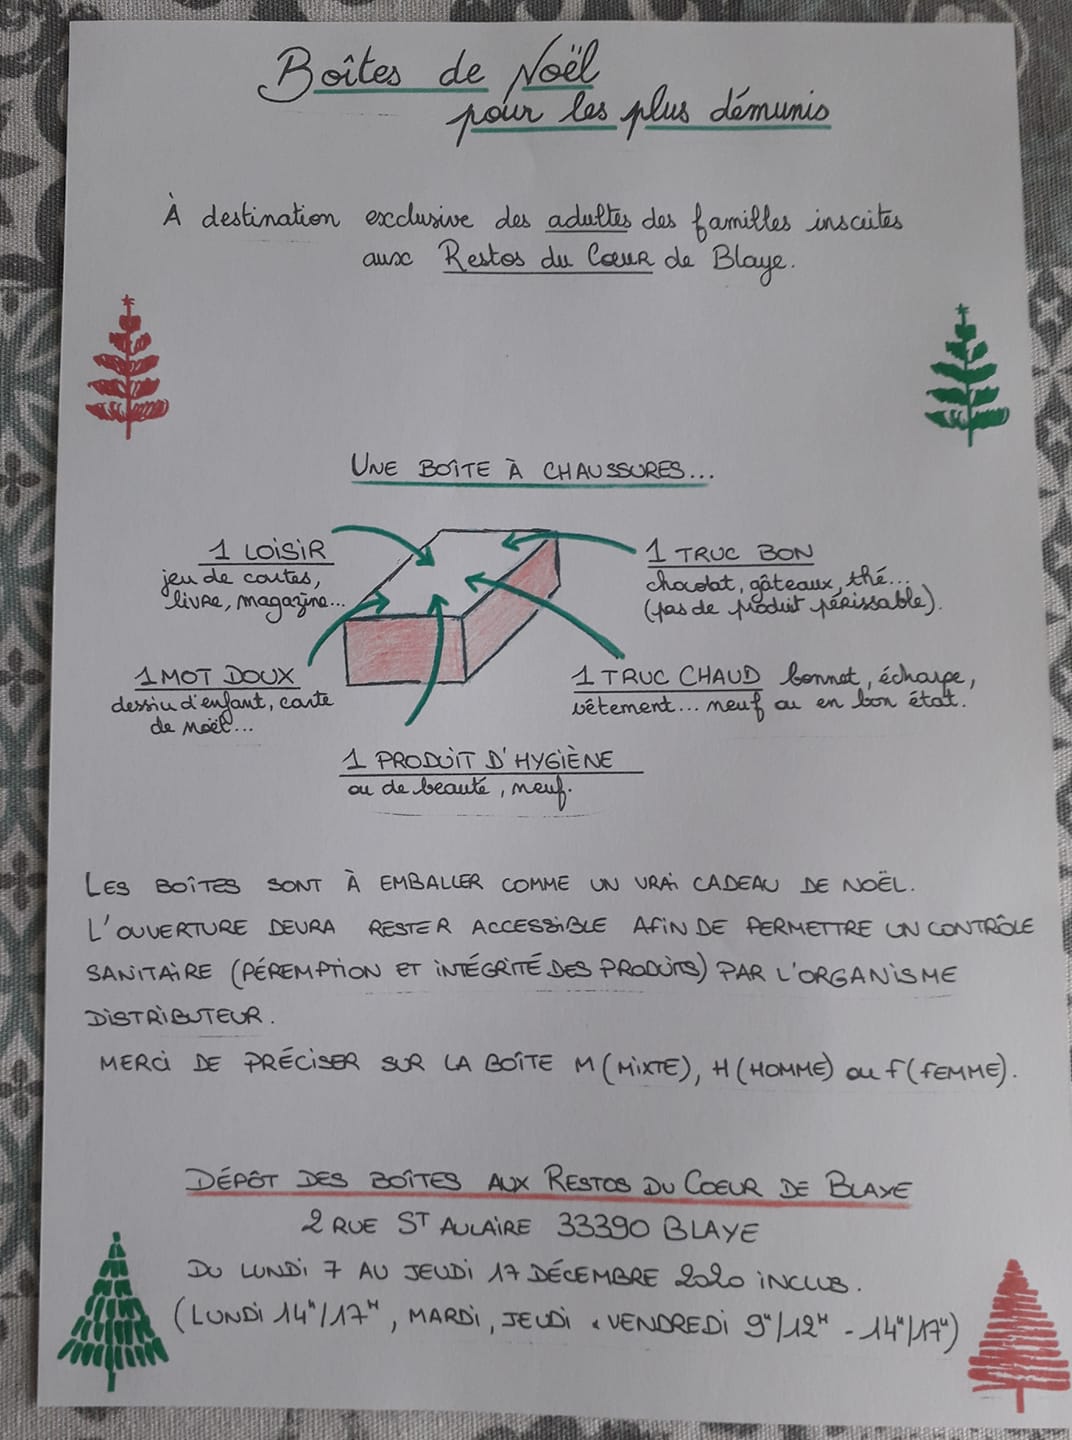 Boîtes de Noël
pour les plus démunis
À destination exclusive des adultes des familles inscrites
aux Restos du Cœur de Blaye.
UNE BOÎTE À CHAUSSURES...
1 LOISIR
jeu de cartes,
livre, magazine...
1 TRUC BON
chocolat, gâteaux, thé...
(pas de produit périssable).
1 MOT DOUX
dessin d'enfant, carte
de Noël...
1 TRUC CHAUD bonnet, écharpe,
vêtement... neuf ou en bon état.
1 PRODUIT D'HYGIÈNE
ou de beauté, neuf.
LES BOÎTES SONT À EMBALLER COMME UN VRAI CADEAU DE NOËL.
L'OUVERTURE DEVRA RESTER ACCESSIBLE AFIN DE PERMETTRE UN CONTRÔLE
SANITAIRE (PÉREMPTION ET INTÉGRITÉ DES PRODUITS) PAR L'ORGANISME
DISTRIBUTEUR.
MERCI DE PRÉCISER SUR LA BOÎTE M (MIXTE), H (HOMME) ou F (FEMME).
DÉPÔT DES BOÎTES AUX RESTOS DU COEUR DE BLAYE
2 RUE ST AULAIRE 33390 BLAYE
DU LUNDI 7 AU JEUDI 17 DÉCEMBRE 2020 INCLUS.
(LUNDI 14H/17H, MARDI, JEUDI & VENDREDI 9H/12H - 14H/17H)